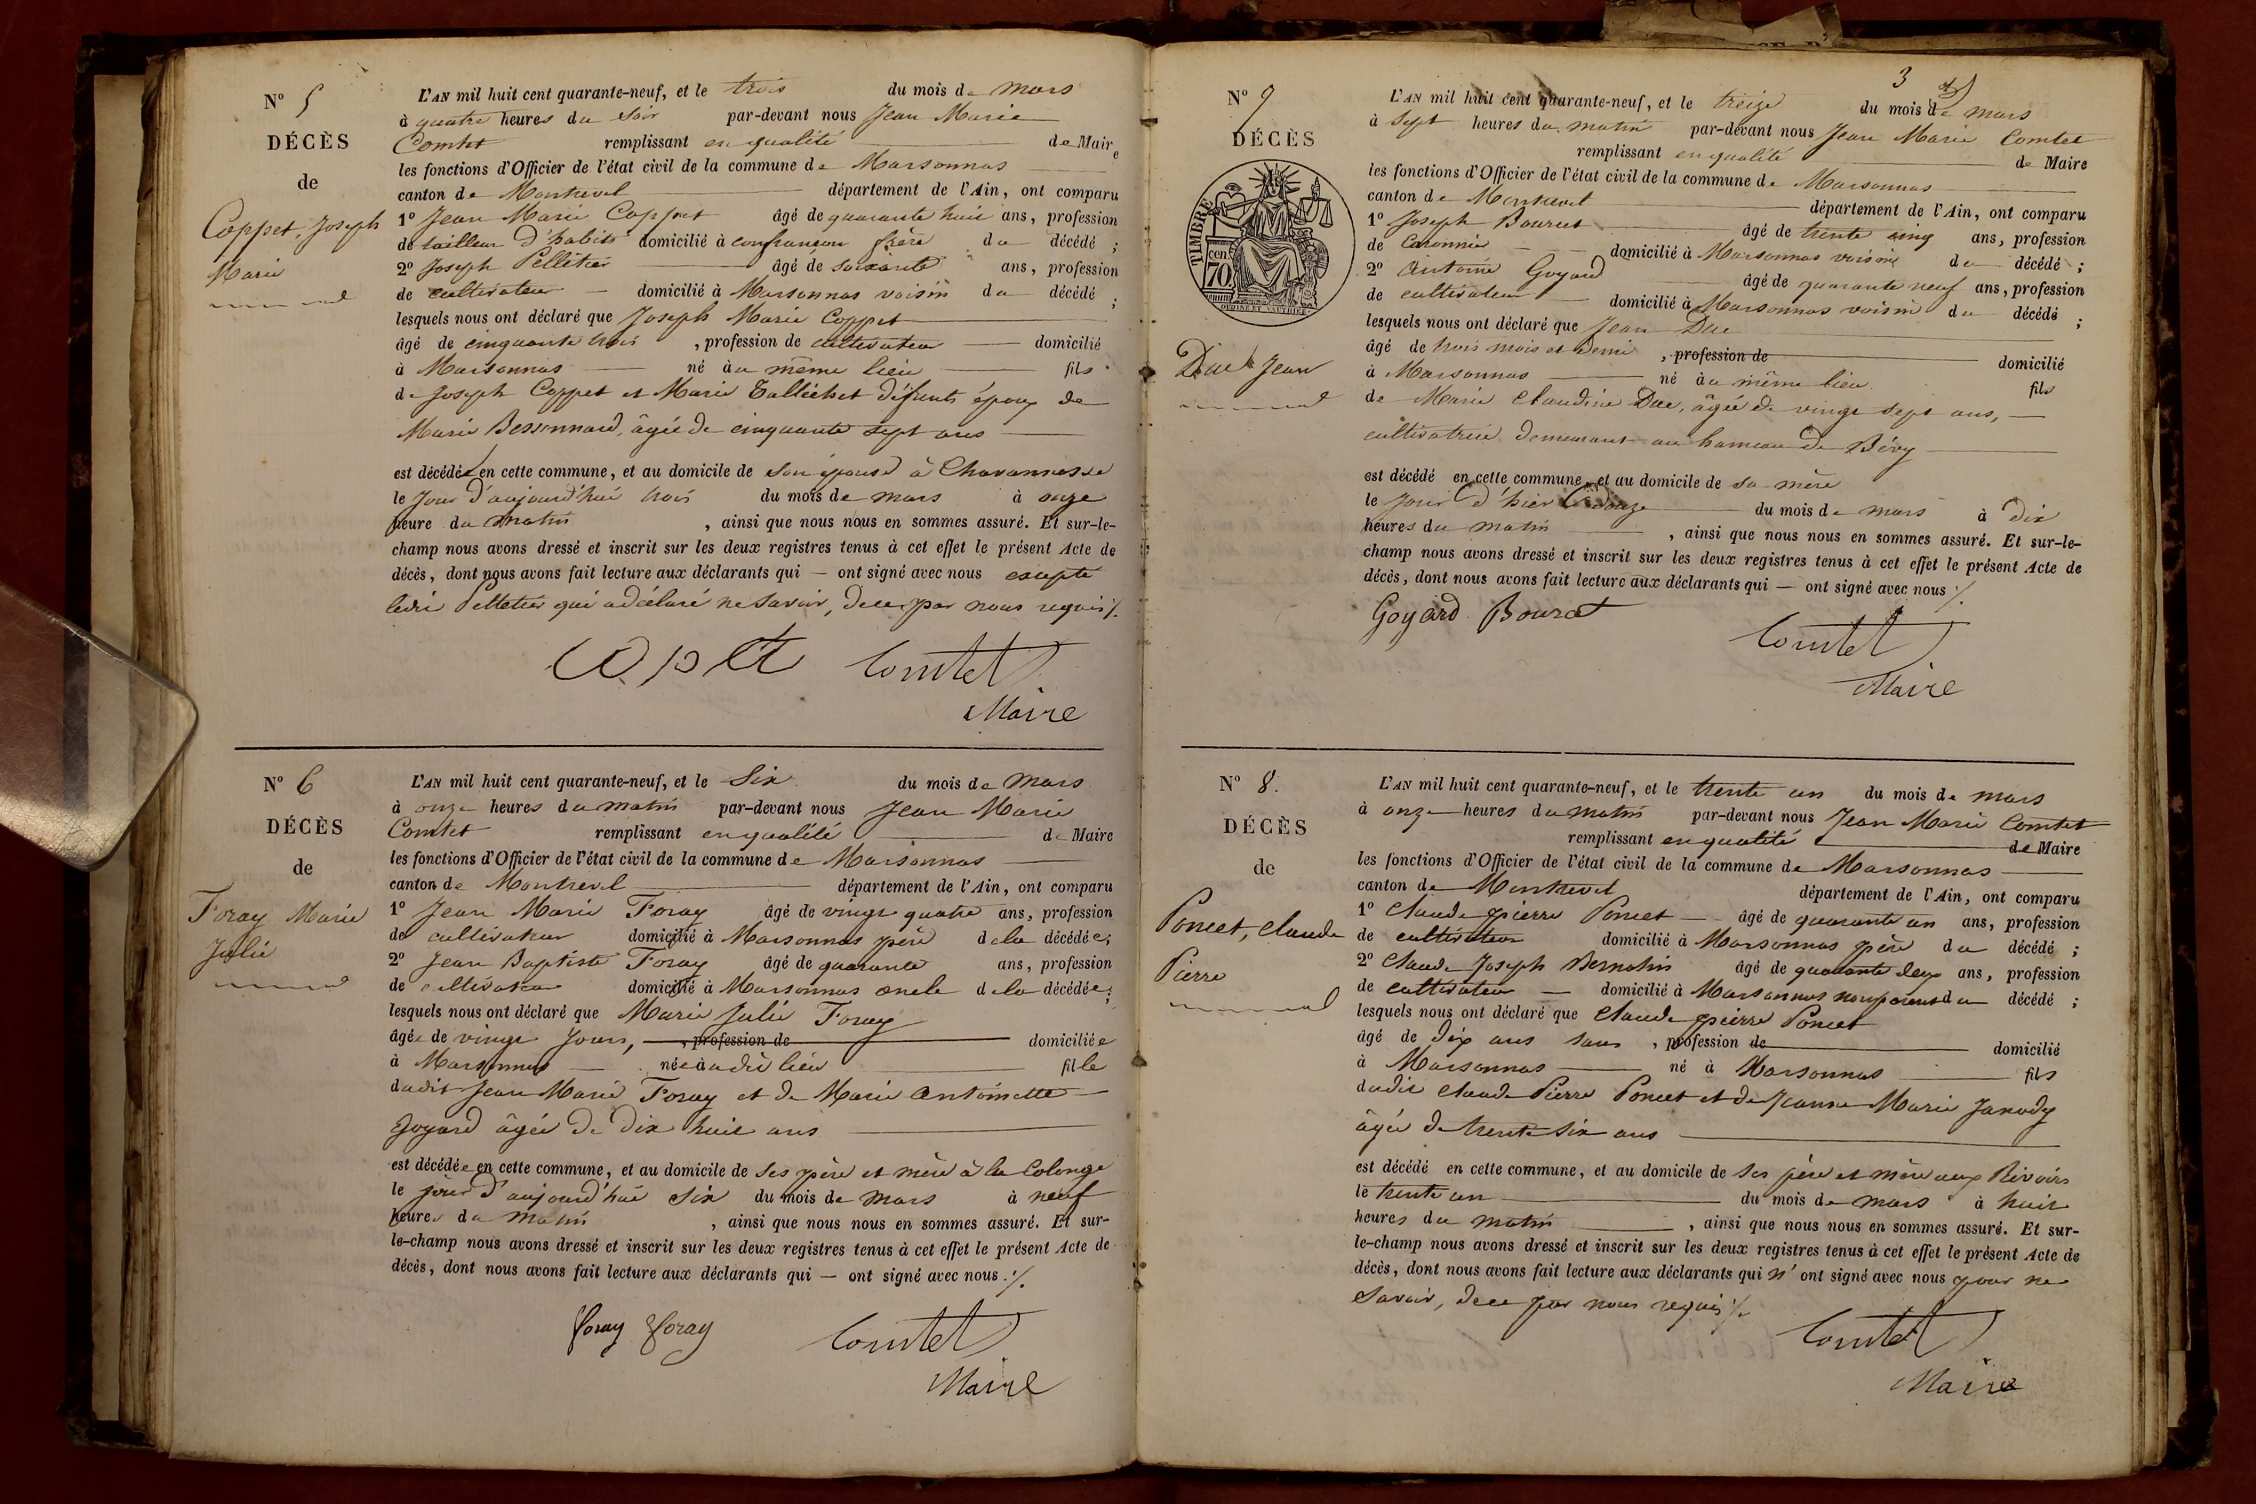 N° 5
DÉCÈS
de
Coppet, Joseph
Marie
L'AN mil huit cent quarante-neuf, et le trois du mois de Mars
à quatre heures du soir par-devant nous Jean Marie
Comtet remplissant en qualité de Maire
les fonctions d'Officier de l'état civil de la commune de Marsonnas
canton de Montrevel département de l'Ain, ont comparu
1° Jean Marie Coppet âgé de quarante huit ans, profession
de tailleur d'habits domicilié à confrançon frère du décédé ;
2° Joseph Pelletier âgé de soixante ans, profession
de cultivateur domicilié à Marsonnas voisin du décédé ;
lesquels nous ont déclaré que Joseph Marie Coppet
âgé de cinquante trois , profession de cultivateur domicilié
à Marsonnas né au même lieu fils
de Joseph Coppet et Marie Tallichet défunts époux de
Marie Bessonnard, âgée de cinquante sept ans
est décédé en cette commune, et au domicile de son épouse à Chavannes
le jour d'aujourd'hui trois du mois de mars à onze
heure du matin , ainsi que nous nous en sommes assuré. Et sur-le-
champ nous avons dressé et inscrit sur les deux registres tenus à cet effet le présent Acte de
décès, dont nous avons fait lecture aux déclarants qui — ont signé avec nous excepté
ledit Pelletier qui a déclaré ne savoir, de ce par nous requis ./.
Copet Comtet
Maire
N° 6
DÉCÈS
de
Foray Marie
Julie
L'AN mil huit cent quarante-neuf, et le Six du mois de Mars
à onze heures du matin par-devant nous Jean Marie
Comtet remplissant en qualité de Maire
les fonctions d'Officier de l'état civil de la commune de Marsonnas
canton de Montrevel département de l'Ain, ont comparu
1° Jean Marie Foray âgé de vingt quatre ans, profession
de cultivateur domicilié à Marsonnas père de la décédée ;
2° Jean Baptiste Foray âgé de quarante ans, profession
de cultivateur domicilié à Marsonnas oncle de la décédée ;
lesquels nous ont déclaré que Marie Julie Foray
âgée de vingt jours, , profession de domiciliée
à Marsonnas née audit lieu fille
dudit Jean Marie Foray et de Marie Antoinette
Goyard âgée de dix huit ans
est décédée en cette commune, et au domicile de ses père et mère à la Colonge
le jour d'aujourd'hui six du mois de mars à neuf
heures du matin , ainsi que nous nous en sommes assuré. Et sur-
le-champ nous avons dressé et inscrit sur les deux registres tenus à cet effet le présent Acte de
décès, dont nous avons fait lecture aux déclarants qui — ont signé avec nous ./.
foray foray Comtet
Maire
3
N° 7
DÉCÈS
TIMBRE
cen. 70
Duc Jean
L'AN mil huit cent quarante-neuf, et le treize du mois de mars
à sept heures du matin par-devant nous Jean Marie Comtet
remplissant en qualité de Maire
les fonctions d'Officier de l'état civil de la commune de Marsonnas
canton de Montrevel département de l'Ain, ont comparu
1° Joseph Bouret âgé de trente cinq ans, profession
de domicilié à Marsonnas voisin du décédé ;
2° Antoine Goyard âgé de quarante neuf ans, profession
de cultivateur domicilié à Marsonnas voisin du décédé ;
lesquels nous ont déclaré que Jean Duc
âgé de trois mois et demi , profession de domicilié
à Marsonnas né au même lieu fils
de Marie Claudine Duc, âgée de vingt sept ans,
cultivatrice demeurant au hameau de Bévy
est décédé en cette commune, et au domicile de sa mère
le jour d'hier douze du mois de mars à dix
heures du matin , ainsi que nous nous en sommes assuré. Et sur-le-
champ nous avons dressé et inscrit sur les deux registres tenus à cet effet le présent Acte de
décès, dont nous avons fait lecture aux déclarants qui — ont signé avec nous ./.
Goyard Bouret
Comtet
Maire
N° 8.
DÉCÈS
de
Poncet, Claude
Pierre
L'AN mil huit cent quarante-neuf, et le trente un du mois de mars
à onze heures du matin par-devant nous Jean Marie Comtet
remplissant en qualité de Maire
les fonctions d'Officier de l'état civil de la commune de Marsonnas
canton de Montrevel département de l'Ain, ont comparu
1° Claude pierre Poncet âgé de quarante un ans, profession
de cultivateur domicilié à Marsonnas père du décédé ;
2° Claude Joseph Bernatin âgé de quarante deux ans, profession
de cultivateur domicilié à Marsonnas non parent du décédé ;
lesquels nous ont déclaré que Claude pierre Poncet
âgé de dix ans sans , profession de domicilié
à Marsonnas né à Marsonnas fils
dudit Claude Pierre Poncet et de Jeanne Marie Janody
âgée de trente six ans
est décédé en cette commune, et au domicile de ses père et mère aux Rivoirs
le trente un du mois de mars à huit
heures du matin , ainsi que nous nous en sommes assuré. Et sur-
le-champ nous avons dressé et inscrit sur les deux registres tenus à cet effet le présent Acte de
décès, dont nous avons fait lecture aux déclarants qui n'ont signé avec nous pour ne
savoir, de ce par nous requis ./.
Comtet
Maire